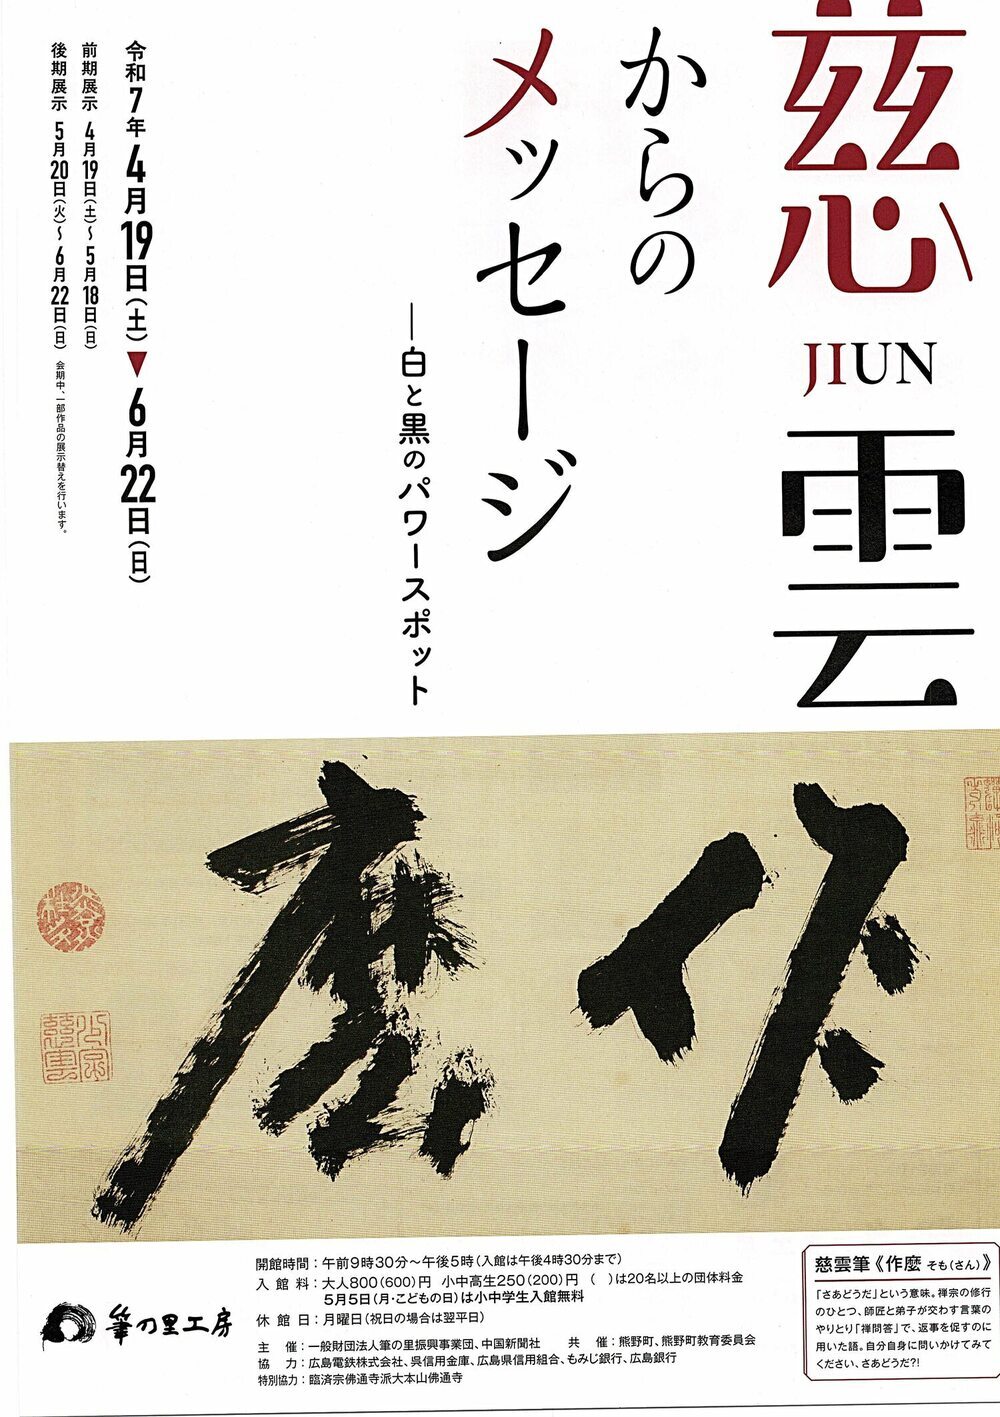 慈雲
JIUN
からの
メッセージ
―白と黒のパワースポット
令和7年4月19日(土)▼6月22日(日)
前期展示 4月19日(土)〜5月18日(日)
後期展示 5月20日(火)〜6月22日(日)
会期中、一部作品の展示替えを行います。
作麼
慈雲
筆の里工房
開館時間：午前9時30分〜午後5時(入館は午後4時30分まで)
入館料：大人800(600)円 小中高生250(200)円 ( )は20名以上の団体料金
5月5日(月・こどもの日)は小中学生入館無料
休館日：月曜日(祝日の場合は翌平日)
主催：一般財団法人筆の里振興事業団、中国新聞社 共催：熊野町、熊野町教育委員会
協力：広島電鉄株式会社、呉信用金庫、広島県信用組合、もみじ銀行、広島銀行
特別協力：臨済宗佛通寺派大本山佛通寺
慈雲筆《作麼 そも(さん)》
「さあどうだ」という意味。禅宗の修行
のひとつ、師匠と弟子が交わす言葉の
やりとり「禅問答」で、返事を促すのに
用いた語。自分自身に問いかけてみて
ください、さあどうだ?!